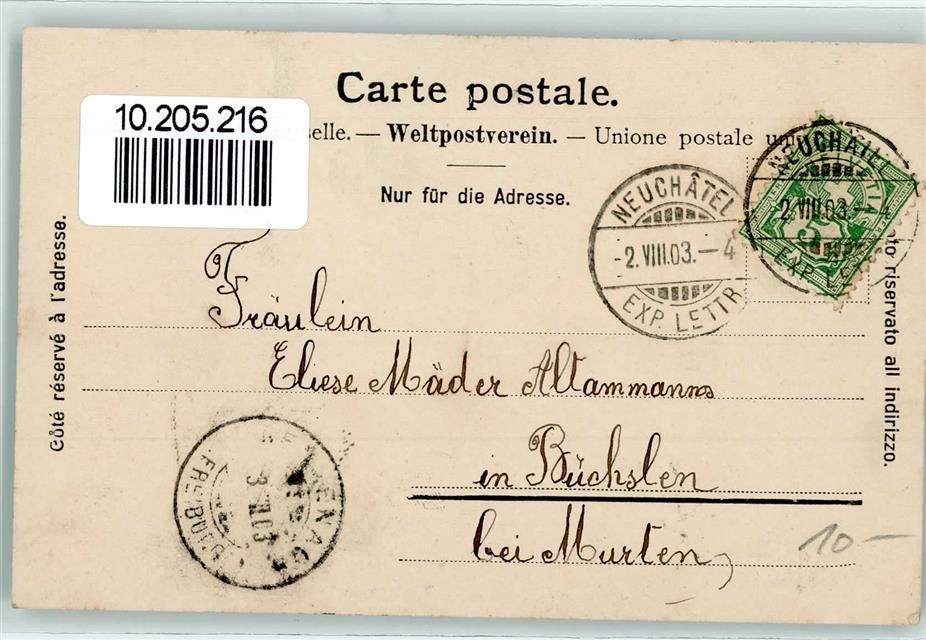 Carte postale.
10.205.216
selle. — Weltpostverein. — Unione postale
Nur für die Adresse.
Côté réservé à l'adresse.
riservato all indirizzo.
NEUCHÂTEL
-2.VIII.03.-4
EXP. LETTR
NEUCHÂTEL
2.VIII.03.-4
EXP. LE
5
Fräulein
Eliese Mäder Altammanns
in Büchslen
bei Murten
10-